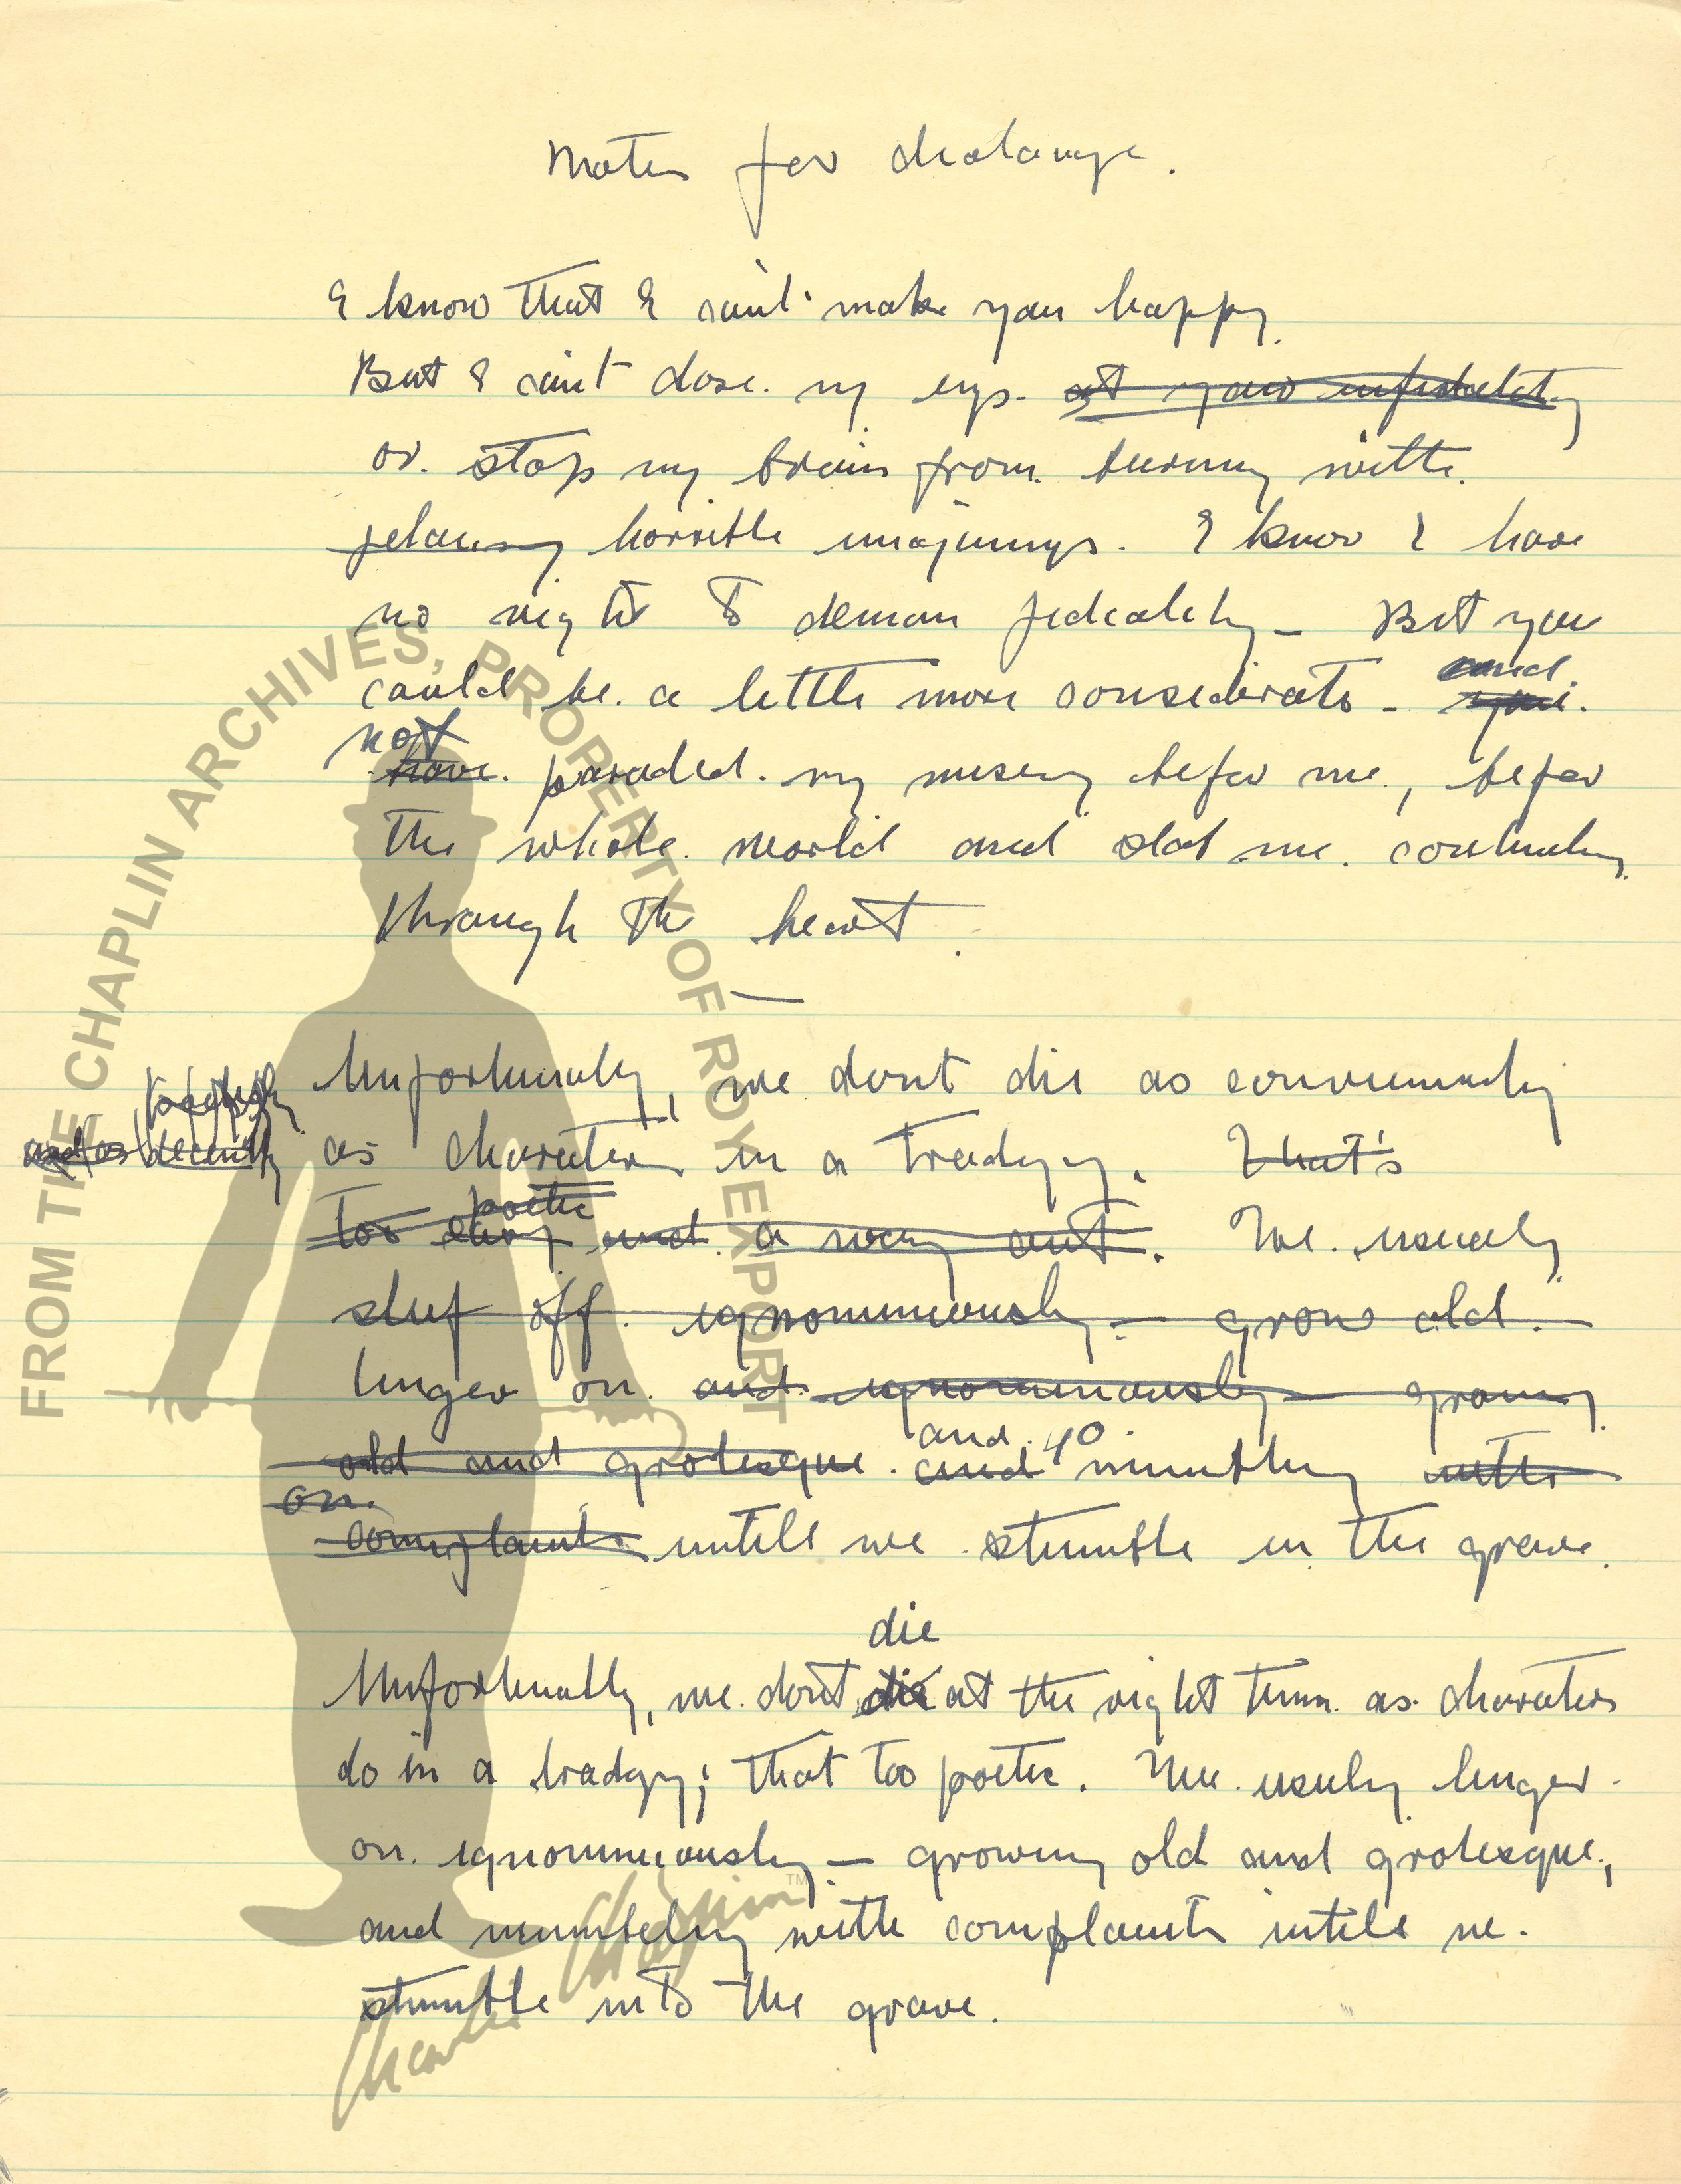 Notes for dialouge.
I know that I can't make you happy.
But I can't close my eys. at your infidelity
or. stop my brain from. burning with.
jelousy horrible imaginings. I know I have
no right to deman fidelity – But you
could be. a little more considerate – and
you.
not
have. paraded. my misery befor me, befor
the whole. world and stab me.
through the heart.
—
Unfortunatly, we dont die as conveniently
and as decently
as charaters in a tradegy. That's
poetic
too easy and. a way out. We. usually
slip off. ignominiously – grow old. –
linger on. and. ignominiously – growing
old and grotesque. and and go mumbling with
on.
complaints until we stumble in the grave.
die
Unfortunatly, we. dont die at the right time. as. charaters
do in a tradgy; that too poetic. We. usuly linger.
on. ignominiously – growing old and grotesque,
and mumbeling with complaints until we.
stumble into the grave.
FROM THE CHAPLIN ARCHIVES, PROPERTY OF ROY EXPORT
Charlie Chaplin TM